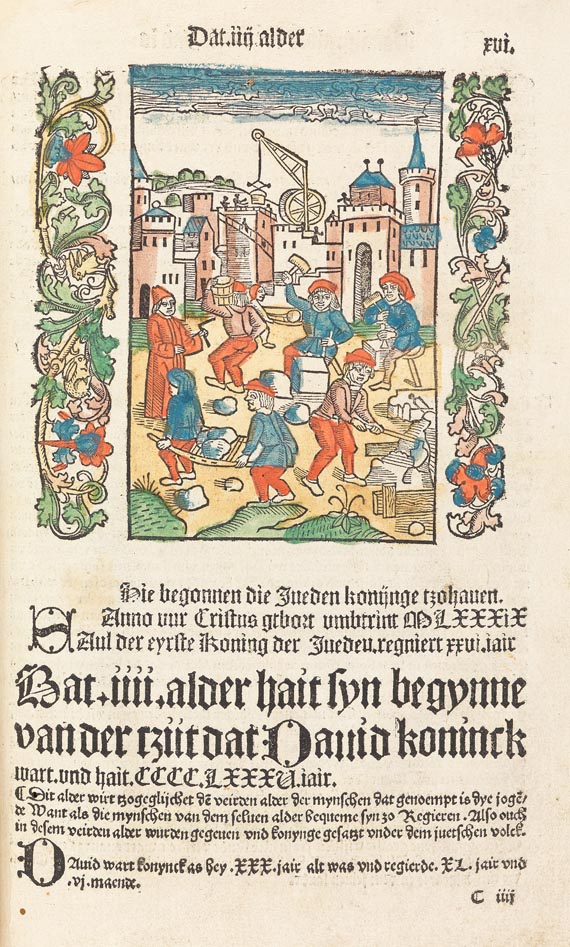 Dat .iiij. alder
xvi.
Hie begonnen die Jueden konijnge tzohauen.
Anno vur Cristus gebort vmbtrint MLXXXIX
SAul der eyrste Koning der Jueden.regniert xxvi.iair
Dat .iiii. alder hait syn begynne
van der tzijt dat Dauid koninck
wart.vnd hait.CCCC.LXXXV.iair.
¶ Dit alder wirt tzogeglijchet dē veirden alder der mynschen dat genoempt is dye jogē/
de Want als die mynschen van dem seluen alder bequeme syn zo Regieren. Also ouch
in desem veirden alder wurden gegeuen vnd konynge gesatzt vnder dem juetschen volck.
DAuid wart konynck as hey .XXX. jair alt was vnd regierde. XL. jair vnd
.vj. maende.
C iiij